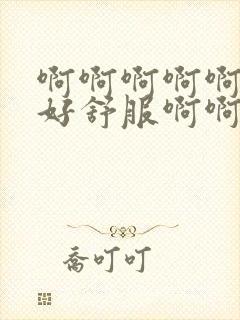 啊啊啊啊啊
好舒服啊啊
乔叮叮